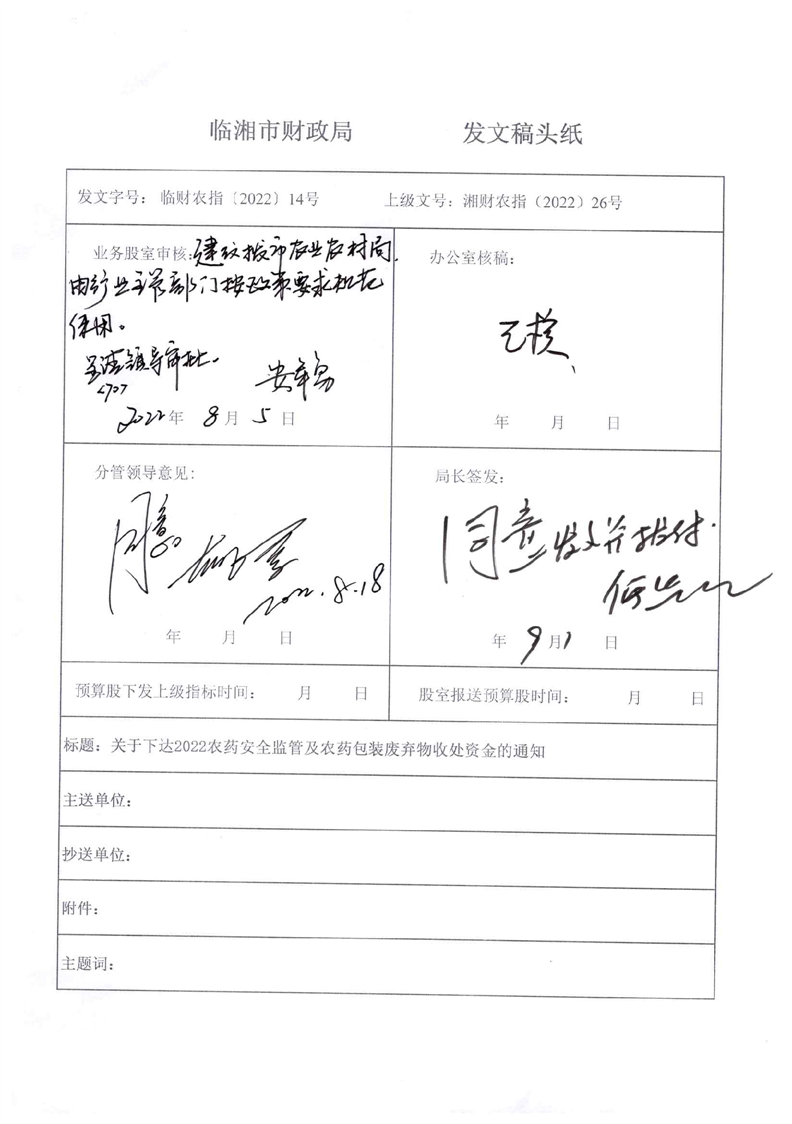 临湘市财政局 发文稿头纸
发文字号： 临财农指〔2022〕14号 上级文号：湘财农指（2022）26号
业务股室审核：建议拨市农业农村局，
由行业主管部门按政策要求规范
使用。
呈请领导审批。
2022年 8月 5日
办公室核稿：
已核
年 月 日
分管领导意见：
同意
2022.8.18
年 月 日
局长签发：
同意发文并拨付.
年 9月1日
预算股下发上级指标时间： 月 日
股室报送预算股时间： 月 日
标题：关于下达2022农药安全监管及农药包装废弃物收处资金的通知
主送单位：
抄送单位：
附件：
主题词：